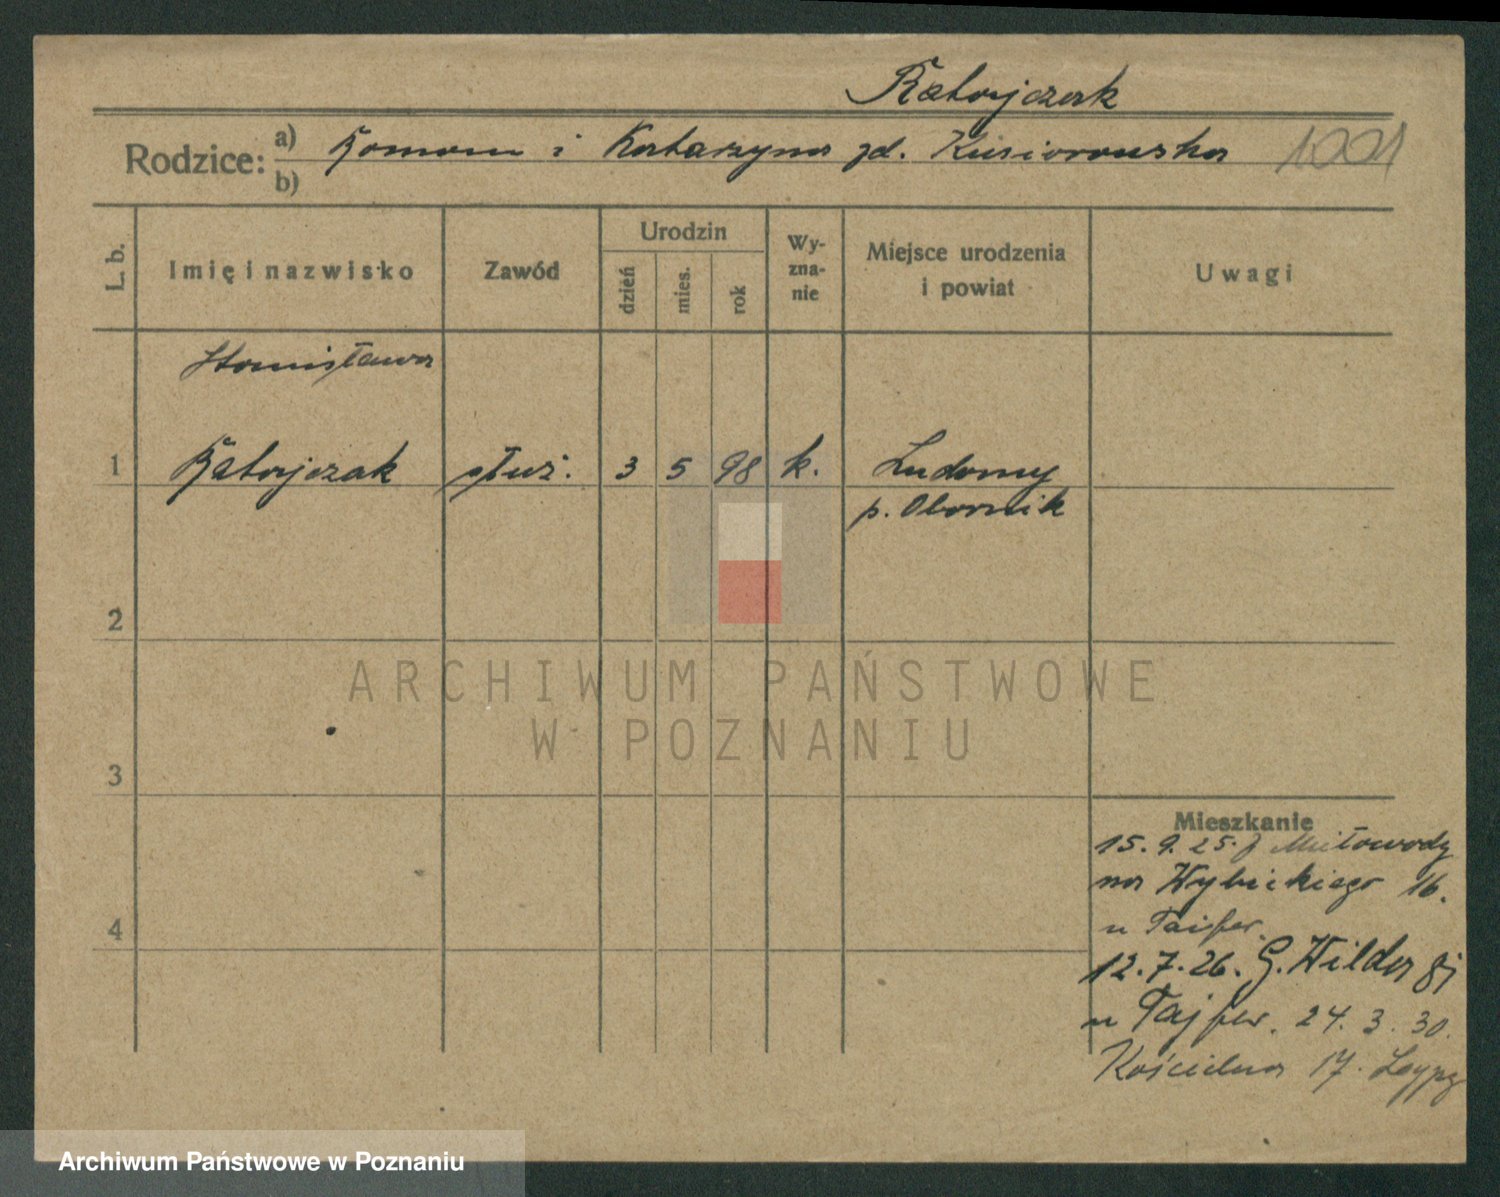 Ratajczak
Rodzice: a) Roman i Katarzyna zd. Kusiorowska 1001
b)
L. b.
Imię i nazwisko
Zawód
Urodzin
dzień
mies.
rok
Wy-
zna-
nie
Miejsce urodzenia
i powiat
Uwagi
Stanisława
1 Ratajczak służ. 3 5 98 k. Ludomy
p. Obornik
2
3
4
Mieszkanie
15. 9. 25. z Miłowody
na Wybickiego 16.
u Taifer.
12. 7. 26. G. Wilda 81
u Tajfer. 24. 3. 30.
Kościelna 17.
ARCHIWUM PAŃSTWOWE
W POZNANIU
Archiwum Państwowe w Poznaniu